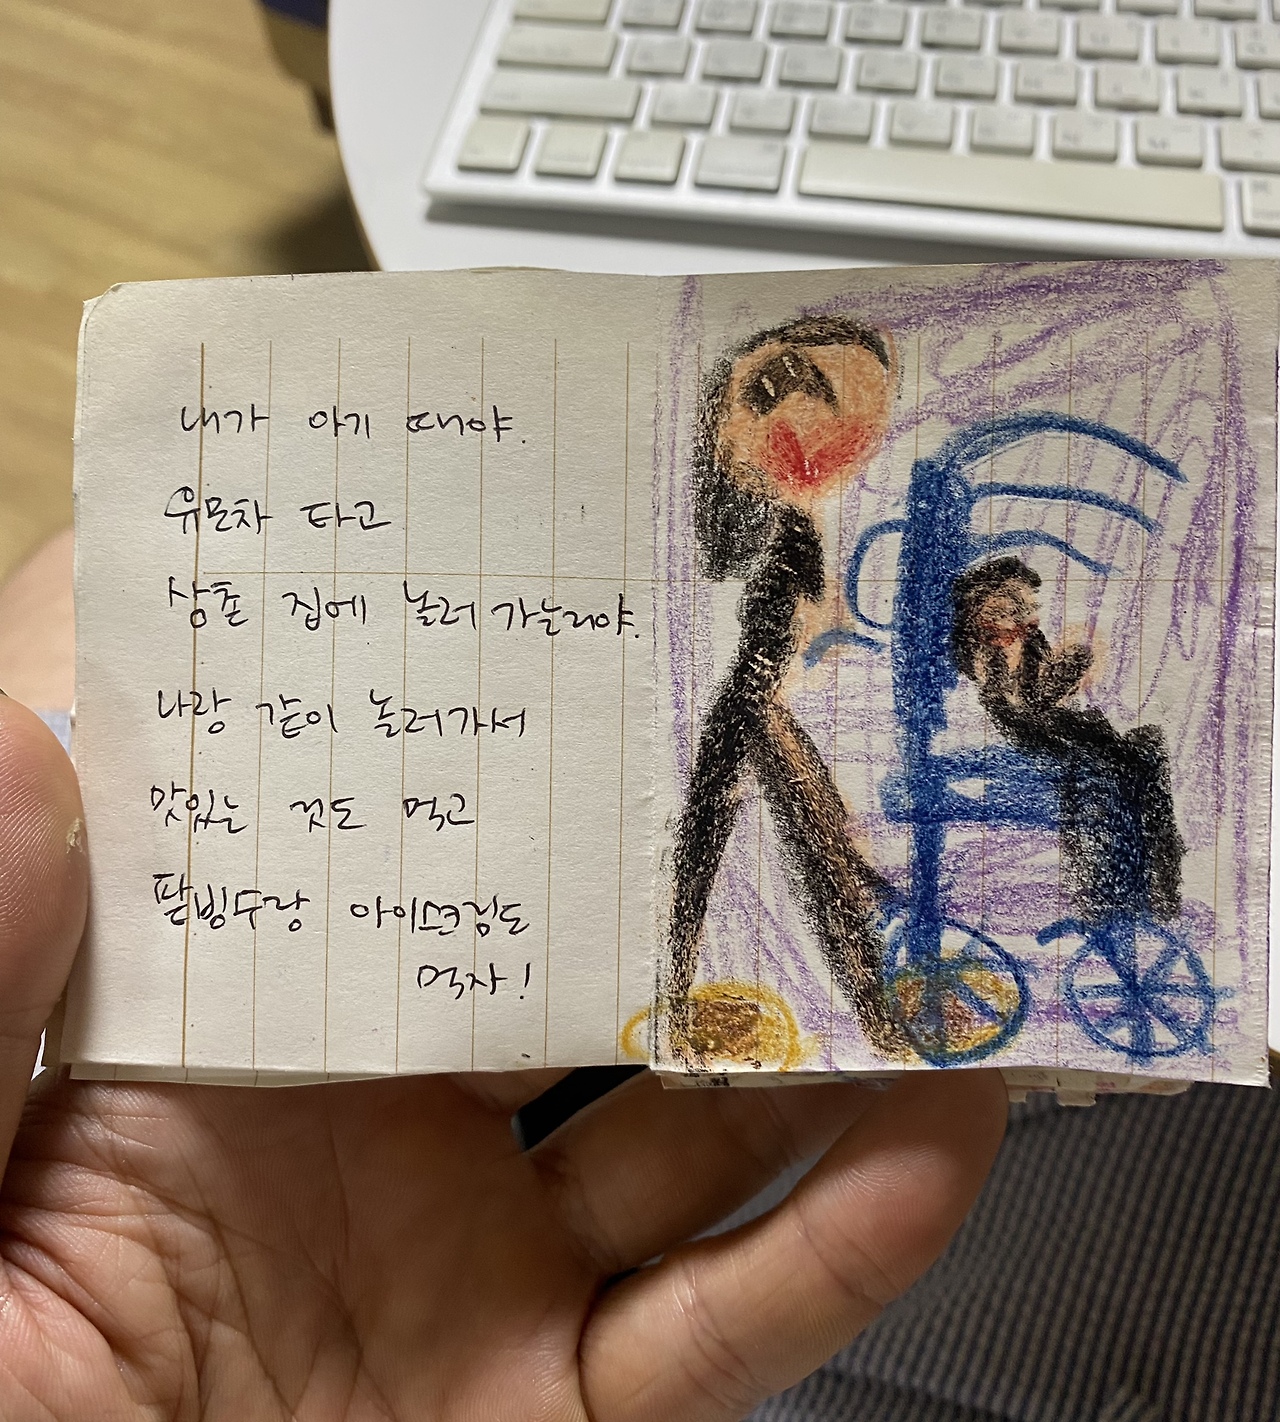 내가 아기 때야.
유모차 타고
삼촌 집에 놀러 가는거야.
나랑 같이 놀러가서
맛있는 것도 먹고
팥빙수랑 아이스크림도
먹자!